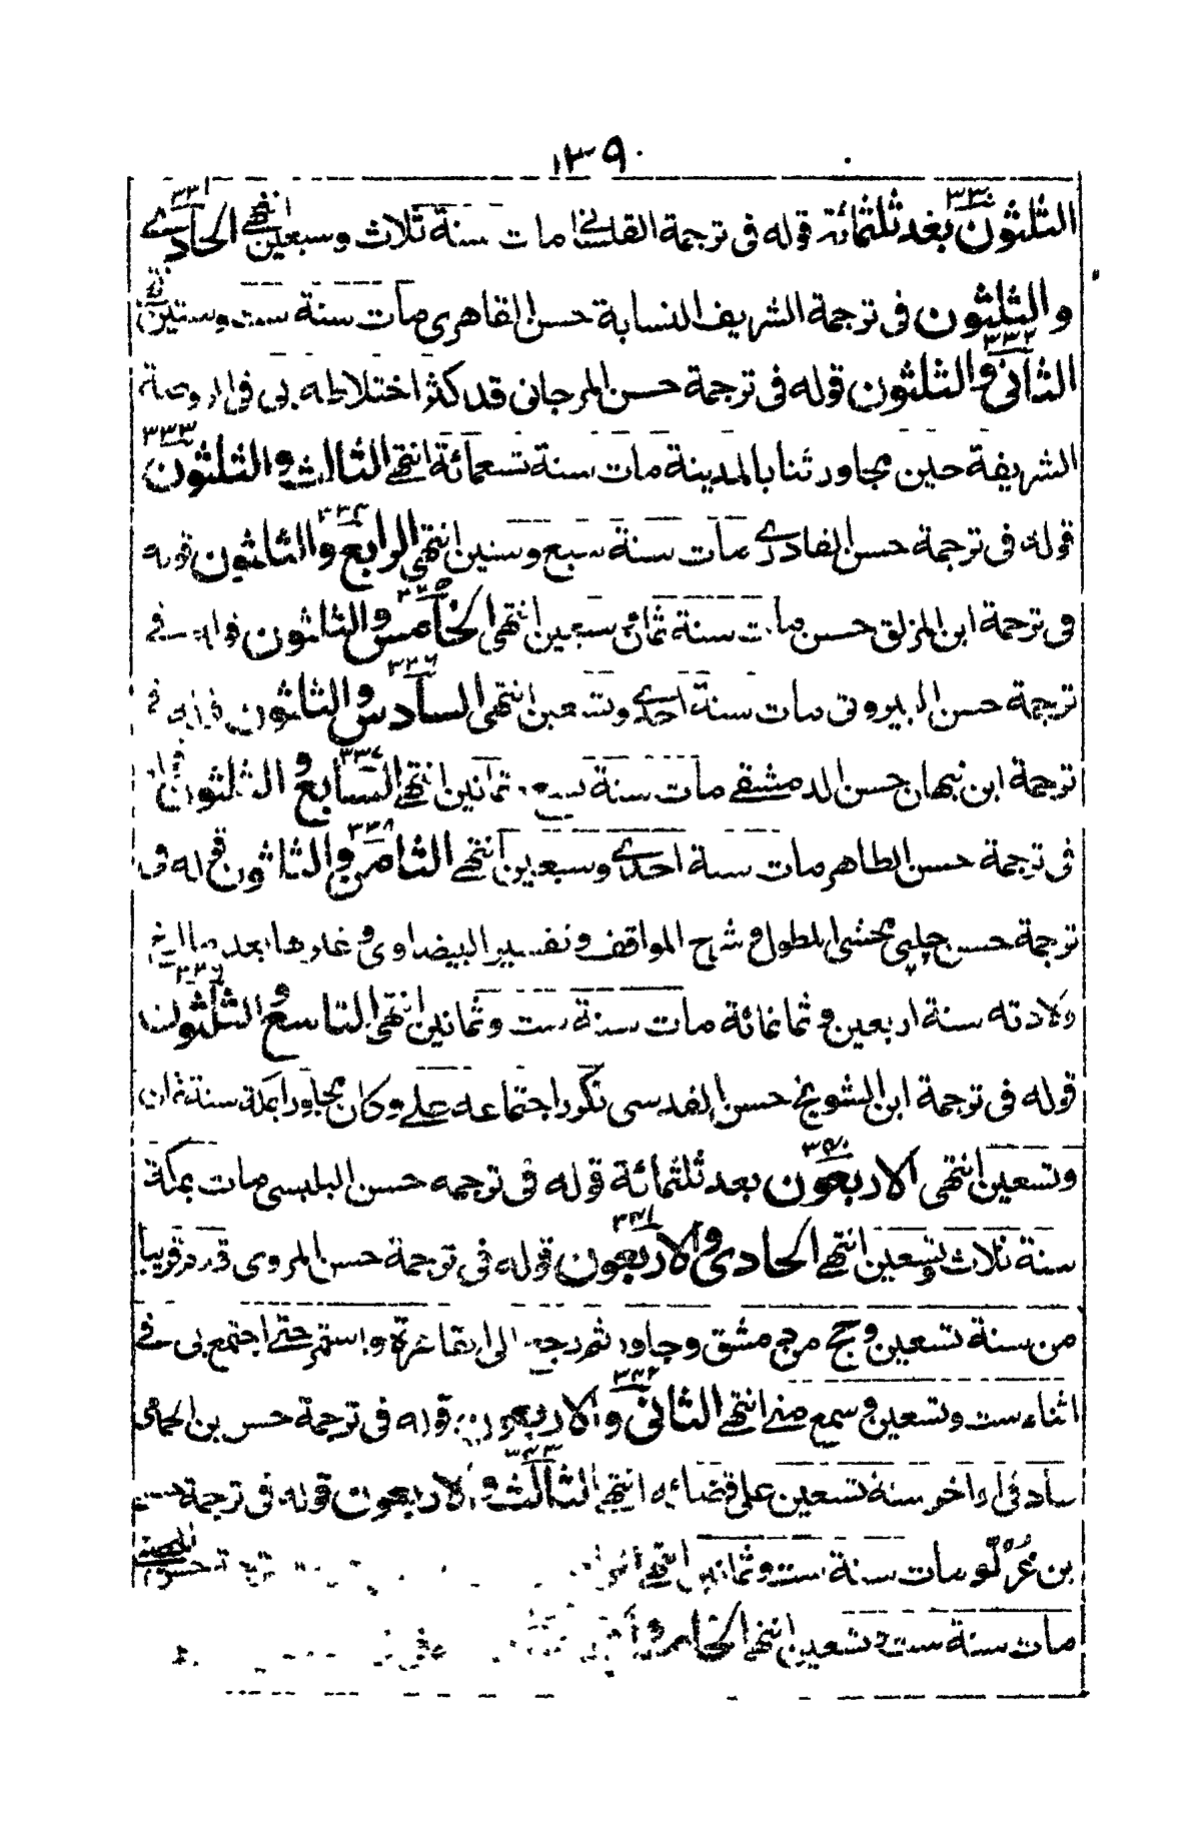 ١٣٩٠
٣٣٠ ٣٣١
الثلثون بعد ثلثمائة قوله فى ترجمة مات سنة ثلاث وسبعين انتهى الحادے
والثلثون فى ترجمة الشريف النسابة حسن القاهرى مات سنة ست وستين
٣٣٢
الثانى والثلثون قوله فى ترجمة حسن المرجانى قد كثر اختلاطه بى فى الروضة
٣٣٣
الشريفة حين مجاورتنا بالمدينة مات سنة تسعمائة انتهى الثالث والثلثون
٣٣٤
قوله فى ترجمة حسن مات سنة سبع وستين انتهى الرابع والثلثون قوله
٣٣٥
فى ترجمة ابن المزلق حسن مات سنة ثمان سبعين انتهى الخامس والثلثون قوله فے
٣٣٦
ترجمة حسن البيروتى مات سنة احدے وتسعين انتهى السادس والثلثون قوله فے
٣٣٧
ترجمة ابن نبهان حسن الدمشقے مات سنة ثمانين انتهے السابع والثلثون قوله
٣٣٨
فى ترجمة حسن الطاهر مات سنة احدے وسبعين انتهے الثامن والثلثون قوله فى
ترجمة حسن چلپى محشى المطول و شرح المواقف وتفسير البيضاوى و غيرها بعد
٣٣٩
ولادته سنة اربعين و ثمانمائة مات سنة ست وثمانين انتهى التاسع والثلثون
قوله فى ترجمة ابن الشويخ حسن القدسى تكرر اجتماعه علے وكان مجاورا بمكة سنة ثمان
٣٤٠
وتسعين انتهى الاربعون بعد ثلثمائة قوله فى ترجمه حسن البلبسى مات بمكة
٣٤١
سنة ثلاث وتسعين انتهے الحادى والاربعون قوله فى ترجمة حسن المروى قدر قريبا
من سنة تسعين و حج من دمشق وجاور ثم رجع الى القاهرة واستمر حتے اجتمع بى فے
٣٤٢
اثناء ست وتسعين و سمع منے انتهے الثانى والاربعون قوله فى ترجمة حسن بن
٣٤٣
فى اواخر سنة تسعين على قضائه انتهے الثالث والاربعون قوله فى ترجمة حسن
بن مات سنة ست وثمانين انتهے
مات سنة ست و تسعين انتهے الخامس و